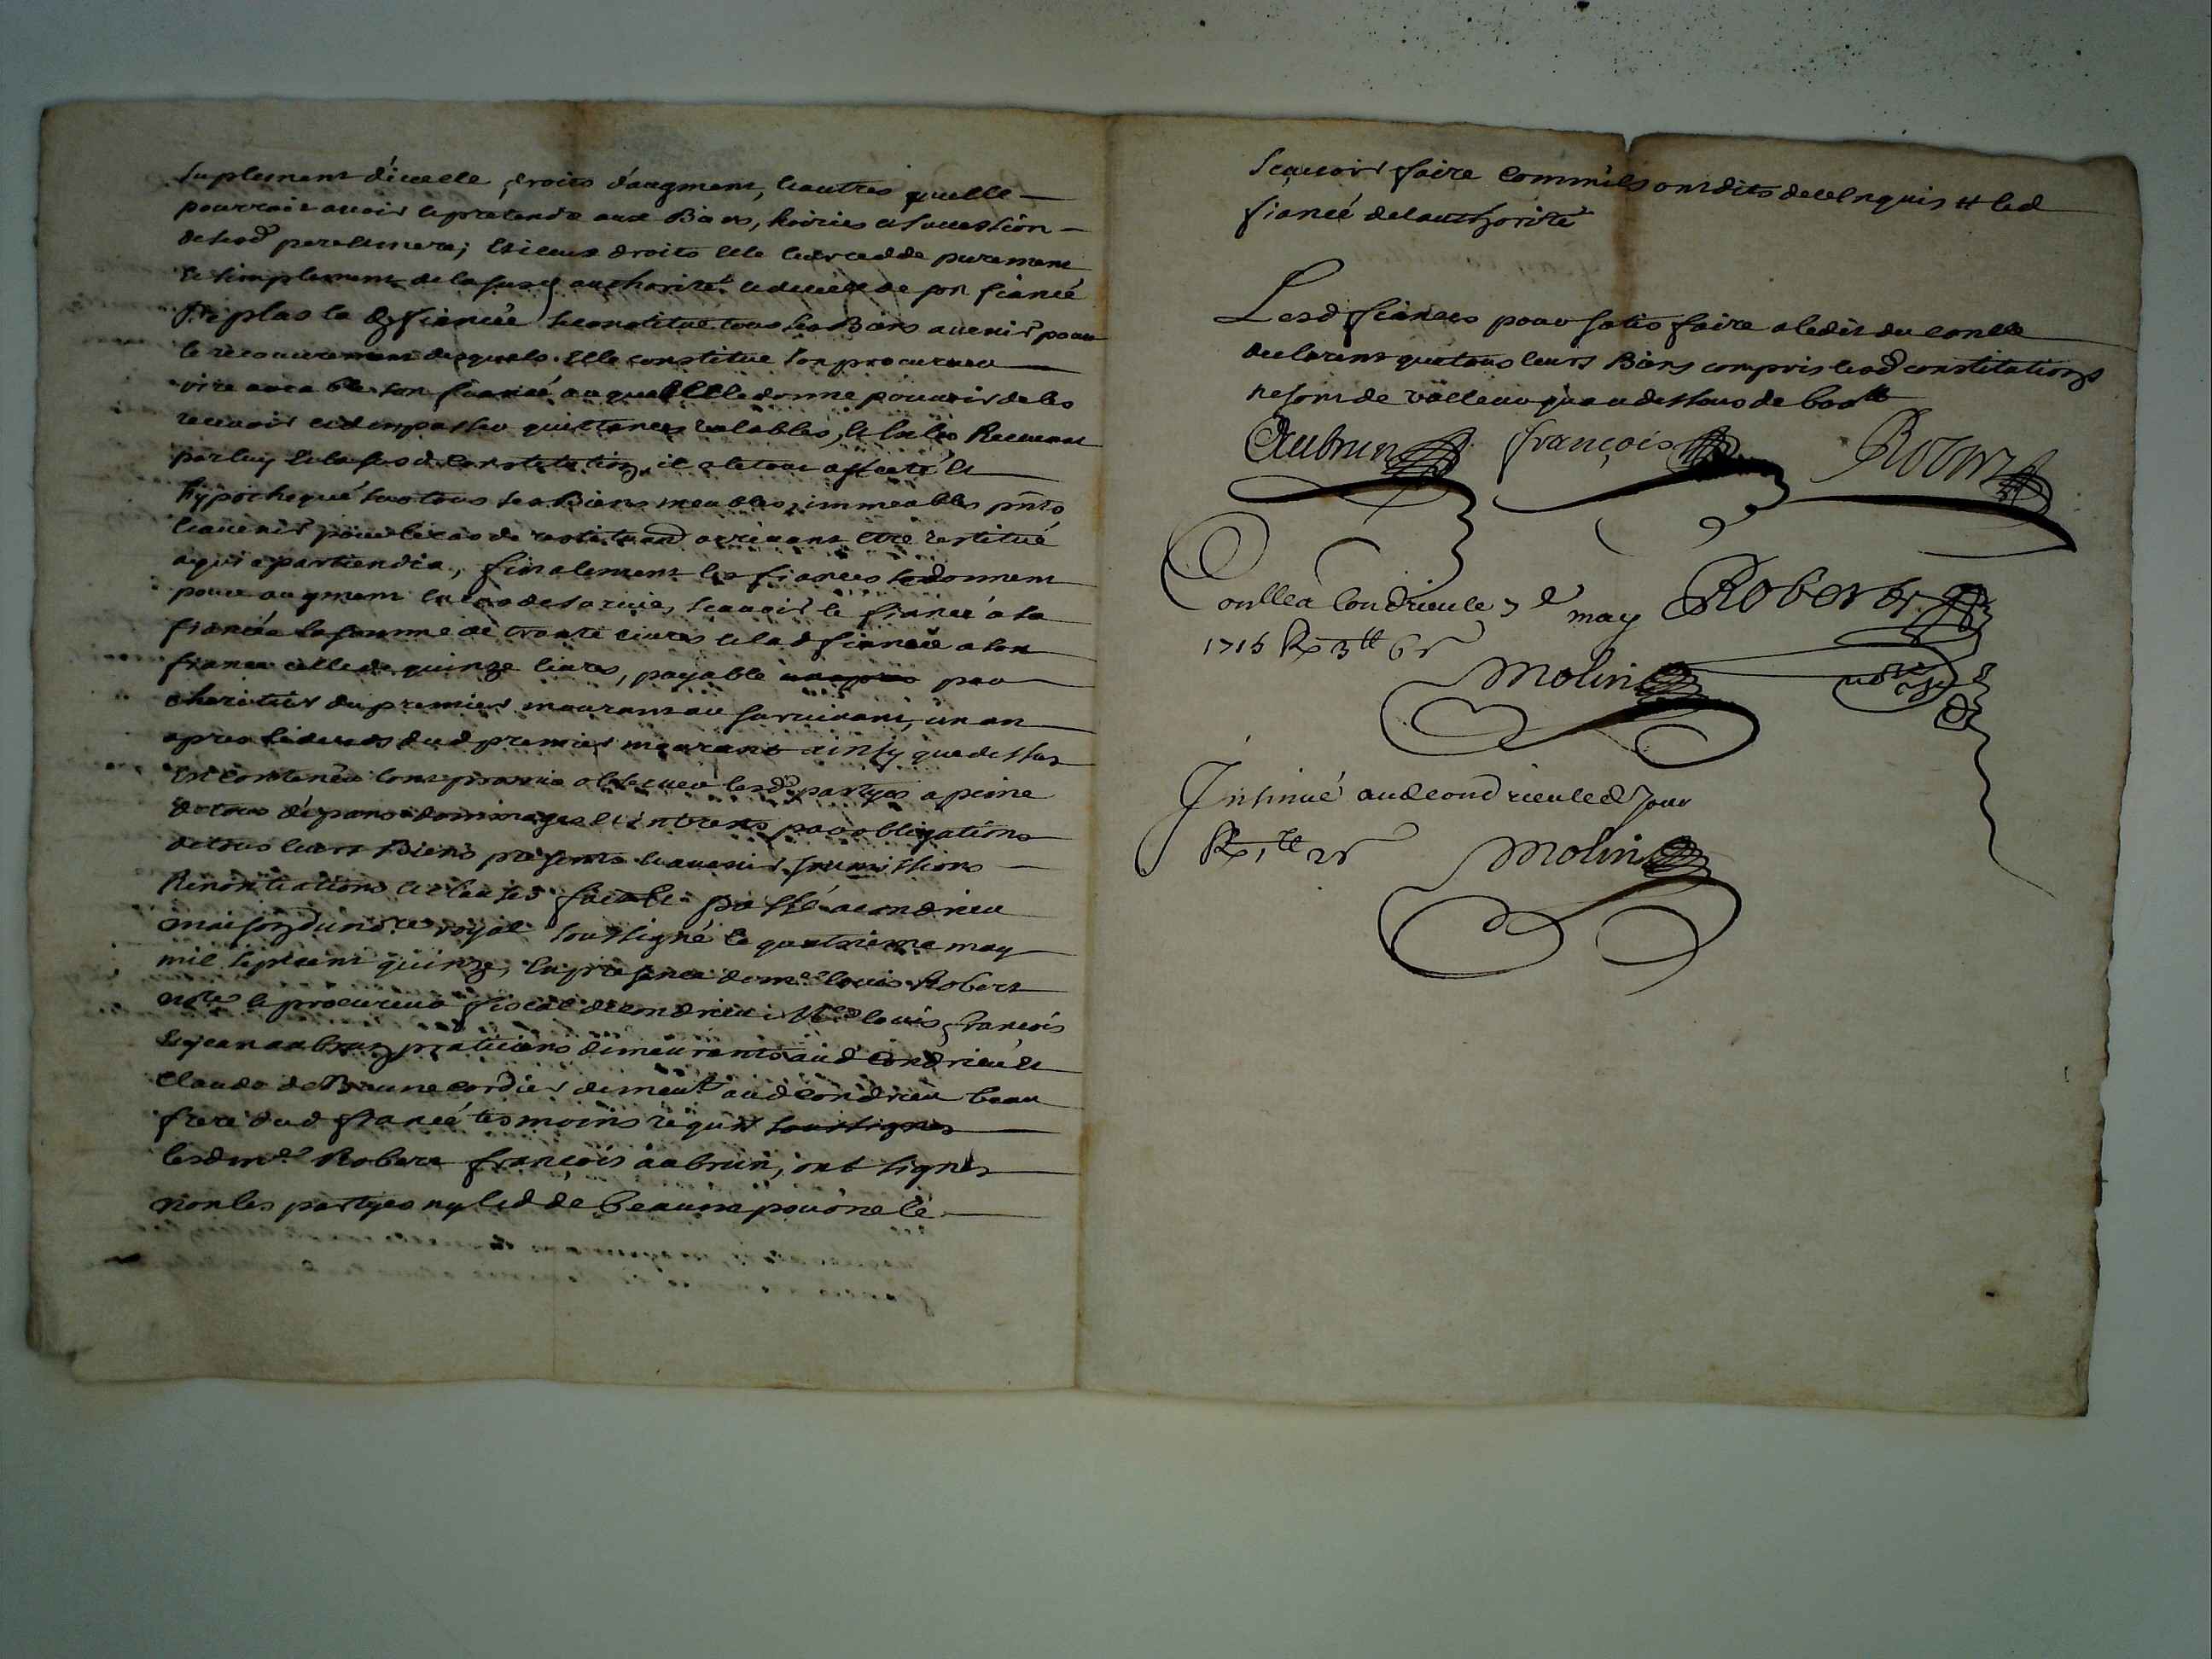 suplement d'icelle, droits d'augment, & autres quelle
pourroit avoir & pretendre aux Biens, hoiries et sucestion
de sesd pere & mere; & iceux droits elle leur cedde purement
& simplement de la susd authorité & de de son fiancé
De plus la d fiancée se constitue tous ses Biens avenir pour
le recouvrement desquels Elle constitue son procureur
son fiancé auquel Elle donne pouvoir de les
recevoir et d'en passer quittances valables, & sur les Receus
par luy & la susd Constitution, il a le tout affecté &
hypothequé sur tous ses Biens meubles, immeubles pnts
& avenir pour le cas de restituaon arrivant etre restitué
a qui apartiendra, finalement les fiances se donnent
pour augment en cas de survie, scavoir le fiancé a la
fiancée la somme de trente livres & la d fiancée a son
fiancé celle de quinze livres, payable par
heritier du premier mourant au survivant, un an
apres le deces dud premier mourant ainsy que dessus
est contenu l'ont promis observer lesd partyes a peine
de tous dépans dommages & intérets par obligations
de tous leurs Biens presents & avenir soumissions
Renontiations et clauses fait & passé a condrieu
maison du nore royal soussigné le quatrieme may
mil sept cent quinze, en presence de me louis Robert
nore & procureur fiscal de condrieu Mes louis françois
& jean aubrun praticiens demeurants aud Condrieu &
Claude de Baune cordier demeut aud Condrieu beau
frere dud fiancé tesmoins requis soussignes
lesd mes Robert françois aubrun, ont signes
non les partyes ny led de beaune pour ne le
scavoir faire comm'ils ont dits de ce Enquis # led
fiancé de l'authorité
Lesd fiances pour satisfaire a ledit du conlle
declarent que tous leurs Biens compris lesd constitutions
ne sont de valleur qu'au dessous de 600#
Aubrun françois Robert
Conllé a Condrieu le 7e may Robert
1715 R 3# 6s
Molin nore
Insinué aud condrieu led Jour
R 1# 2s Molin